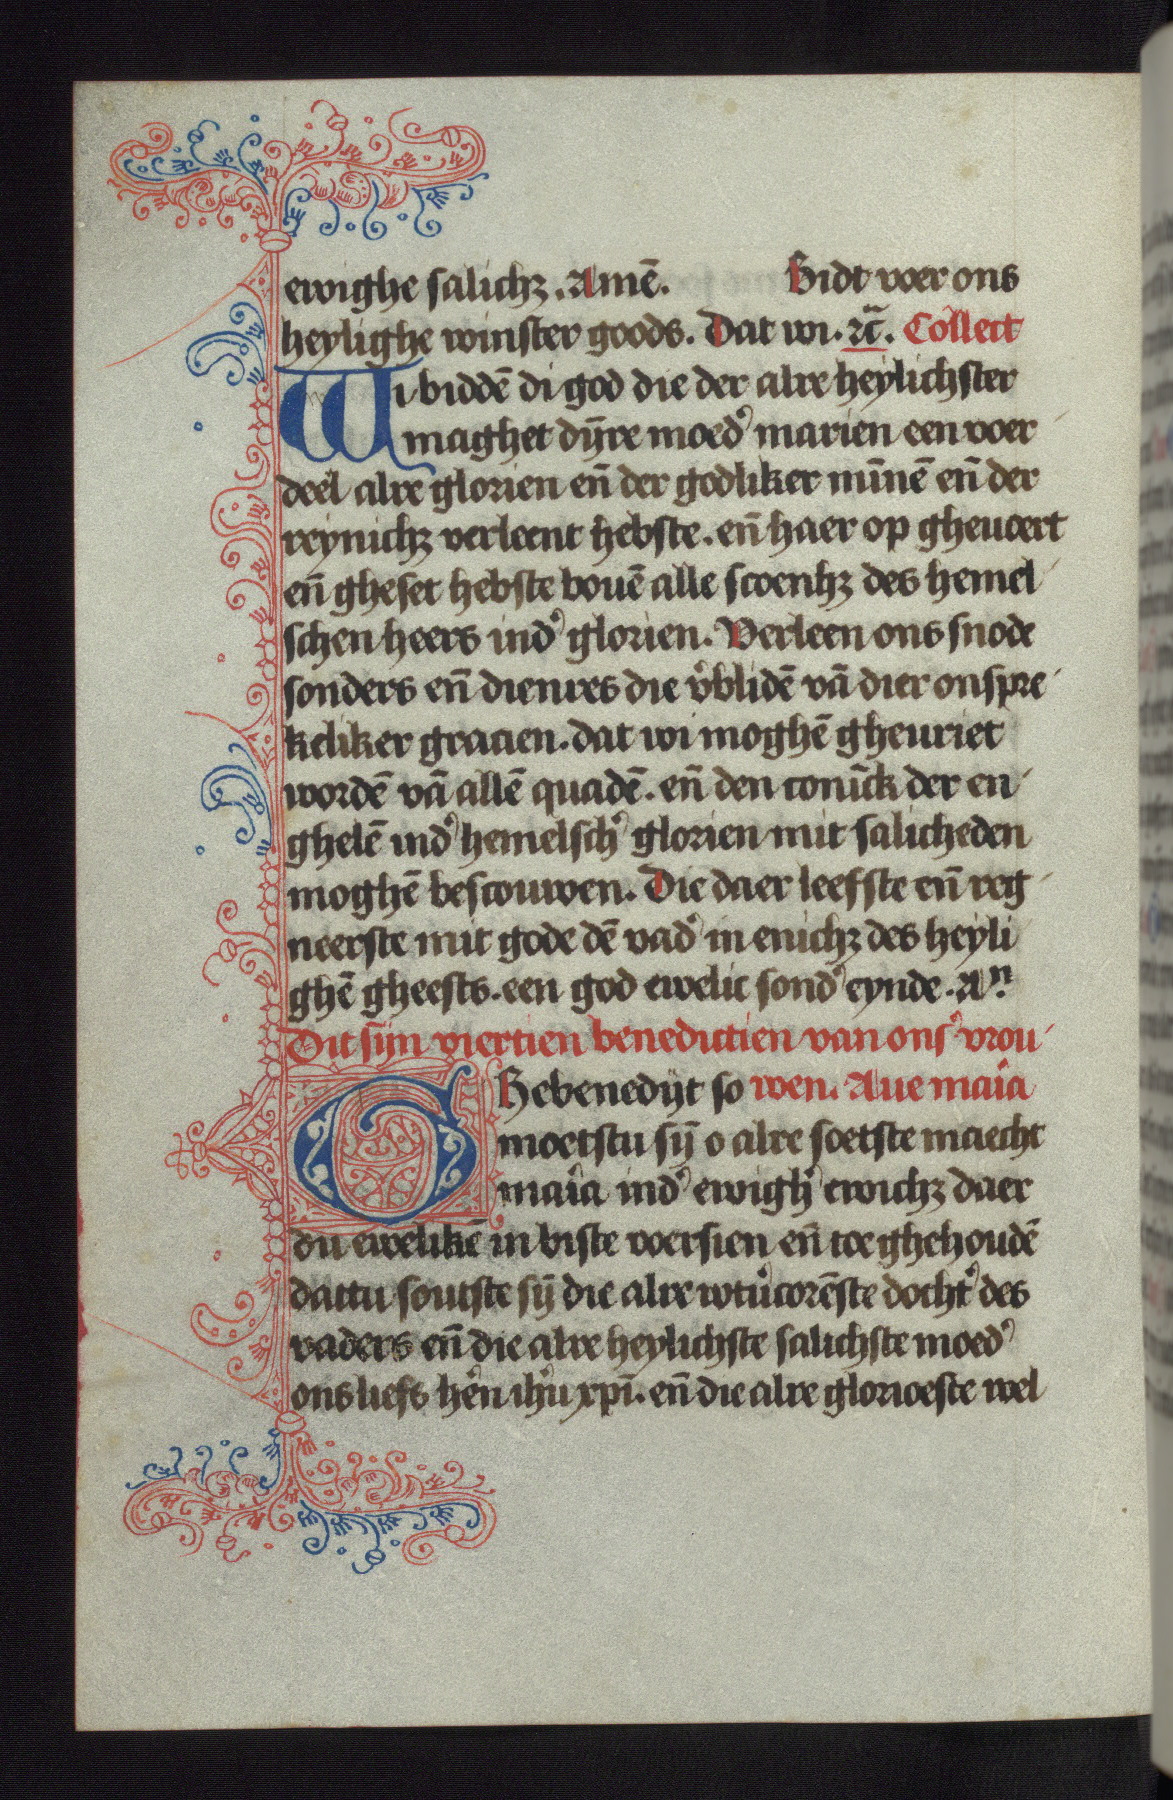 ewighe salichꝫ. Amē. Bidt voer ons
heylighe winster gods. Dat wi. ꝛc̄. Collect
Wi biddē di god die der alre heylichster
maghet dijnre moed' marien een voer
deel alre glorien en̄ der godliker mīnē en̄ der
reynichꝫ verleent hebste. en̄ haer op gheuoert
en̄ gheset hebste bouē alle scoenhꝫ des hemel
schen heers ind' glorien. Verleen ons snode
sonders en̄ dienres die v'blidē vā dier onspre
keliker gracien. dat wi moghē gheuriet
wordē vā allē quadē. en̄ den conīck der en
ghelē ind' hemelsch' glorien mit salicheden
moghē bescouwen. Die daer leefste en̄ reg
neerste mit gode dē vad' in enichꝫ des heyli
ghē gheests. een god ewelic sond' eynde. Aⁿ
Dit sijn viertien benedictien van ons' vrou
Ghebenedijt so wen. Aue maīa
moetstu sij̄ o alre soetste maecht
maīa ind' ewigh' ewichꝫ daer
du ewelikē in biste voersien en̄ toe ghehoudē
dattu soutste sij̄ die alre wtu'corēste docht' des
vaders en̄ die alre heylichste salichste moed'
ons liefs h'en ihū xp̄i. en̄ die alre glorioeste wel